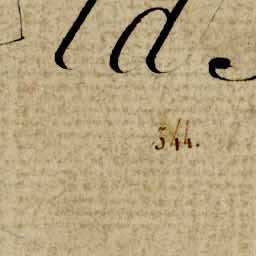 ld
544.